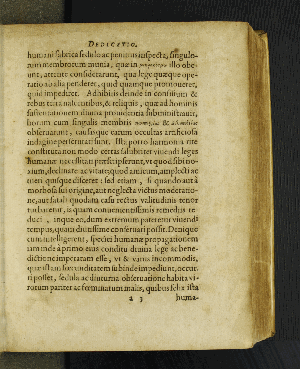 DEDICATIO.
humani fabrica sedulo ac penitus inspecta, singulo-
rum membrorum munia, quæ in illo obe-
unt, attente considerarunt, qua lege quæque ope-
ratio ab alia penderet, quid quamque promoueret,
quid impediret. Adhibitis deinde in consilium &
rebus terra nascentibus, & reliquis, quæ ad hominis
sustentationem diuina prouidentia subministrauit,
horum cum singulis membris
obseruarunt, causasque earum occultas artificiosa
indagine perscrutati sunt. Ista porro harmonia rite
constituta non modo certas salubriter viuendi leges
humanæ necessitati præscripserunt, vt quod sibi no-
xium, declinare ac vitare: quod amicum, amplecti ac
tueri quisque disceret: sed etiam, si quando aut a
morbosa sui origine, aut neglecta victus moderatio-
ne, aut fatali quodam casu rectus valitudinis tenor
turbaretur, is quam conuenientissimis remediis re-
duci, inque eo, dum extremum paterent viuendi
tempus, quam diutissime conseruari posset. Denique
cum intelligerent, speciei humanæ propagationem
iam inde a primo eius conditu diuina lege ac bene-
dictione imperatam esse, vt & variis incommodis,
quæ istam fœcunditatem subinde impediunt, occur-
ri posset, sedula ac diuturna obseruatione habita vi-
rorum pariter ac fœminarum malis, quibus felix ista
a 3 huma-